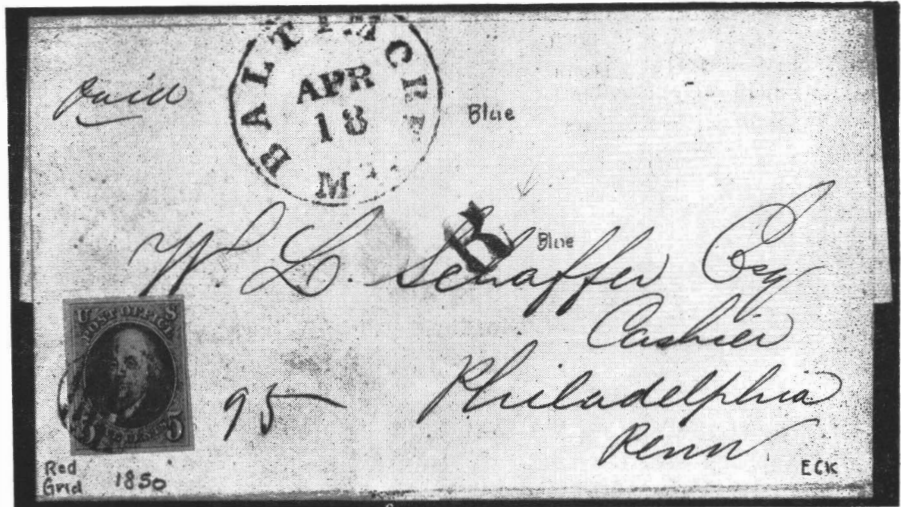 Paid
BALTIMORE Md
APR
18
Blue
R
Blue
W. L. Schaffer Esq
Cashier
Philadelphia
Penn
U S
POST OFFICE
5 CENTS 5
95
Red
Grid
1850
ECK